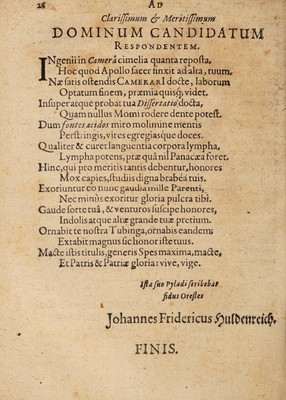 28
AD
Clarissimum & Meritissimum
DOMINUM CANDIDATUM
RESPONDENTEM.
INgenii in Camerâ cimelia quanta reposta,
Hoc quod Apollo sacer finxit ad alta, tuum.
Næ satis ostendis CAMERARI docte, laborum
Optatum finem, præmia quisq; videt.
Insuper atque probat tua Dissertatio docta,
Quam nullus Momi rodere dente potest.
Dum fontes acidos miro molimine mentis
Perstringis, vires egregiasque doces.
Qualiter & curet languentia corpora lympha,
Lympha potens, præ quâ nil Panacæa foret.
Hinc, qui pro meritis tantis debentur, honores
Mox capies, studiis digna brabéa tuis.
Exoriuntur eo nunc gaudia mille Parenti,
Nec minùs exoritur gloria pulcra tibi.
Gaude sorte tuâ, & venturos suscipe honores,
Indolis atque altæ grande tuæ pretium.
Ornabit te nostra Tubinga, ornabis eandem;
Extabit magnus sic honor iste tuus.
Macte istis titulis, generis Spes maxima, macte,
Et Patris & Patriæ gloria: vive, vige.
Ista suo Pyladi scribebat
fidus Orestes
Johannes Fridericus Huldenreich.
FINIS.